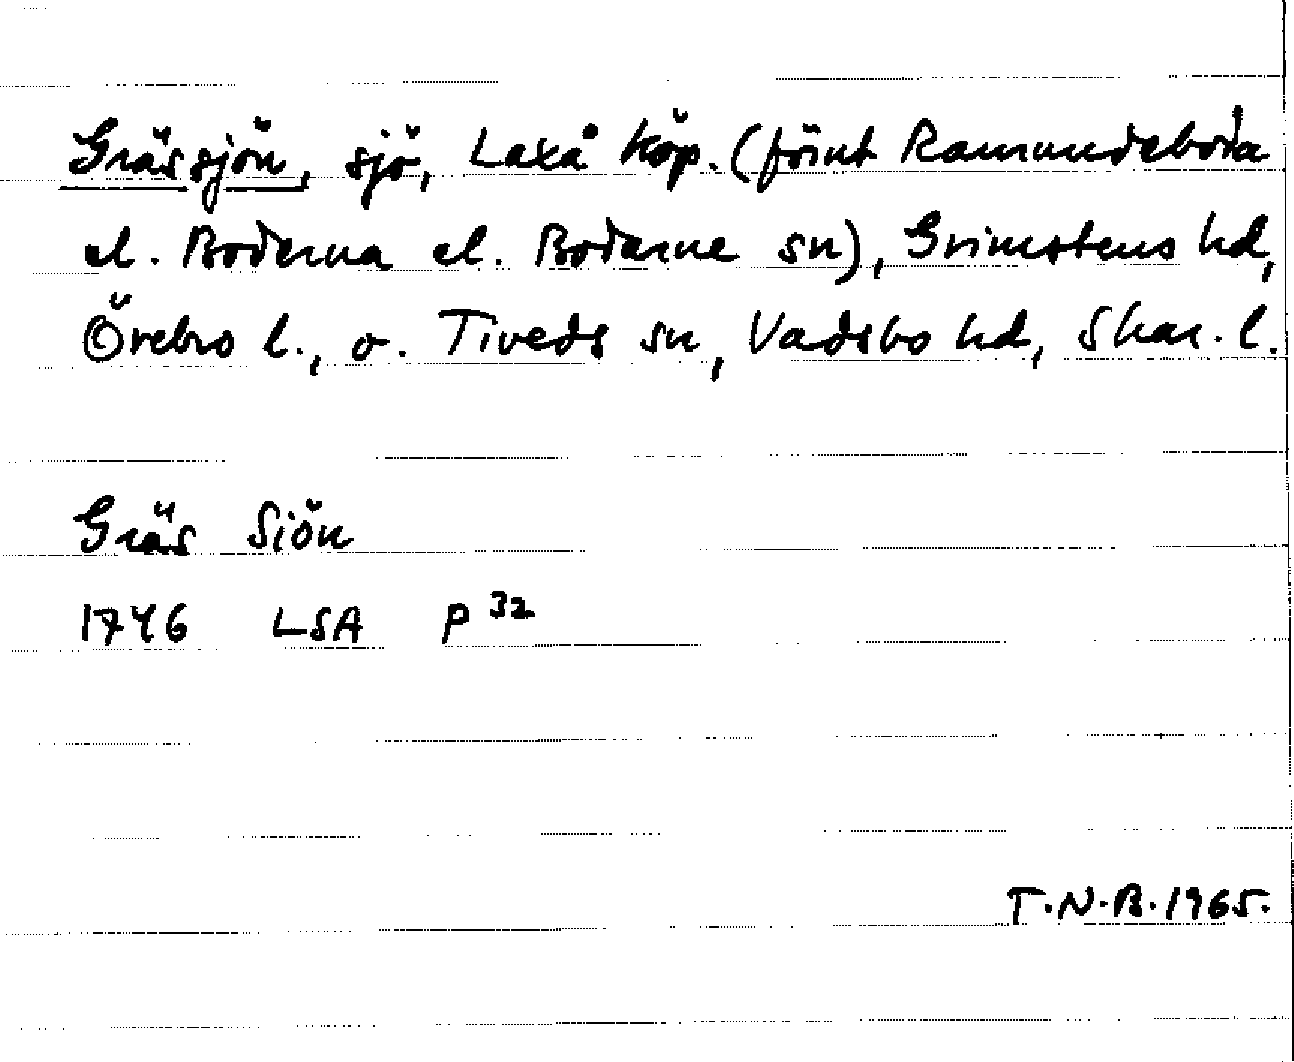 Grässjön, sjö, Laxå köp. (förut Ramundeboda
el. Boderna el. Bodarne sn), Grimstens hd,
Örebro l., o. Tiveds sn, Vadsbo hd, Skar. l.
Gräs Siön
1746 LSA P 32
T.N.B. 1965.